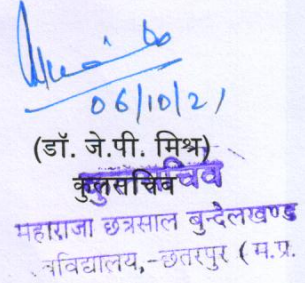 06/10/21
(डॉ. जे.पी. मिश्र)
कुलसचिव
कुलसचिव
महाराजा छत्रसाल बुन्देलखण्ड
वविद्यालय,-छतरपुर (म.प्र.